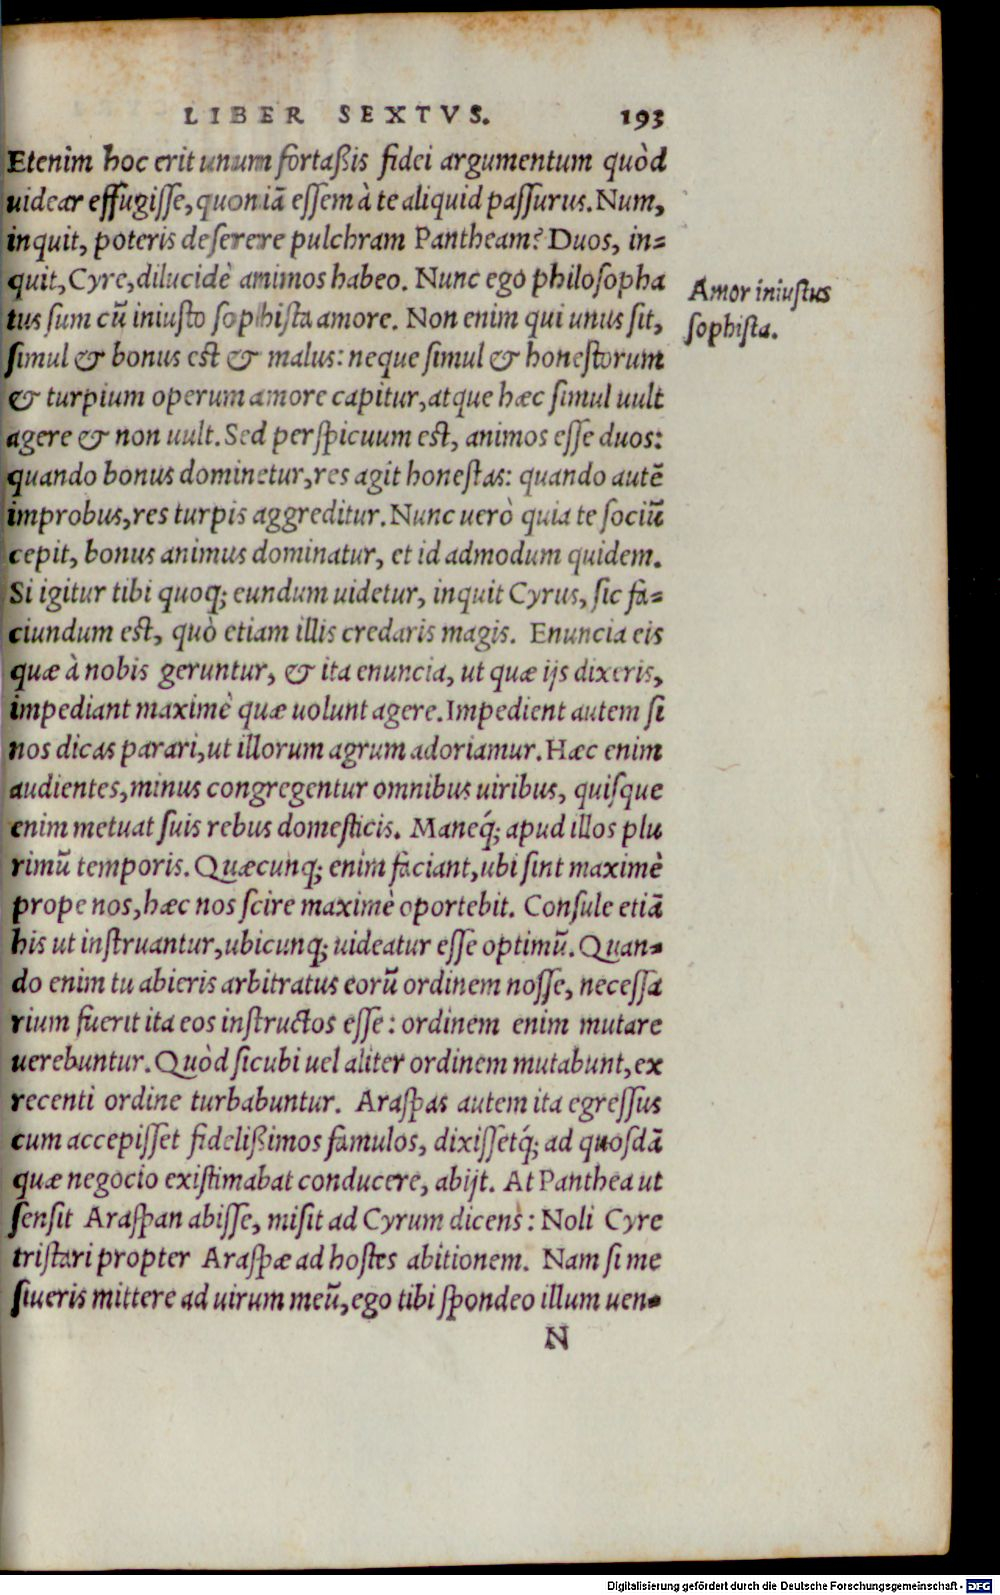 LIBER SEXTVS. 193
Etenim hoc erit unum fortaßis fidei argumentum quòd
uidear effugiſſe, quoniā eſſem à te aliquid paſſurus. Num,
inquit, poteris deſerere pulchram Pantheam? Duos, in=
quit, Cyre, dilucidè animos habeo. Nunc ego philoſopha
tus ſum cū iniuſto ſophiſta amore. Non enim qui unus ſit,
ſimul & bonus eſt & malus: neque ſimul & honeſtorum
& turpium operum amore capitur, atque hæc ſimul uult
agere & non uult. Sed perſpicuum eſt, animos eſſe duos:
quando bonus dominetur, res agit honeſtas: quando autē
improbus, res turpis aggreditur. Nunc uerò quia te ſociū
cepit, bonus animus dominatur, et id admodum quidem.
Si igitur tibi quoq; eundum uidetur, inquit Cyrus, ſic fa=
ciundum eſt, quò etiam illis credaris magis. Enuncia eis
quæ à nobis geruntur, & ita enuncia, ut quæ ijs dixeris,
impediant maximè quæ uolunt agere. Impedient autem ſi
nos dicas parari, ut illorum agrum adoriamur. Hæc enim
audientes, minus congregentur omnibus uiribus, quiſque
enim metuat ſuis rebus domeſticis. Maneq́; apud illos plu
rimū temporis. Quæcunq; enim faciant, ubi ſint maximè
prope nos, hæc nos ſcire maximè oportebit. Conſule etiā
his ut inſtruantur, ubicunq; uideatur eſſe optimū. Quan=
do enim tu abieris arbitratus eorū ordinem noſſe, neceſſa
rium fuerit ita eos inſtructos eſſe: ordinem enim mutare
uerebuntur. Quòd ſicubi uel aliter ordinem mutabunt, ex
recenti ordine turbabuntur. Araſpas autem ita egreſſus
cum accepiſſet fideliſsimos famulos, dixiſſetq́; ad quoſdā
quæ negocio exiſtimabat conducere, abijt. At Panthea ut
ſenſit Araſpan abiſſe, miſit ad Cyrum dicens: Noli Cyre
triſtari propter Araſpæ ad hoſtes abitionem. Nam ſi me
ſiueris mittere ad uirum meū, ego tibi ſpondeo illum uen=
N
Amor iniuſtus
ſophiſta.
Digitalisierung gefördert durch die Deutsche Forschungsgemeinschaft - DFG